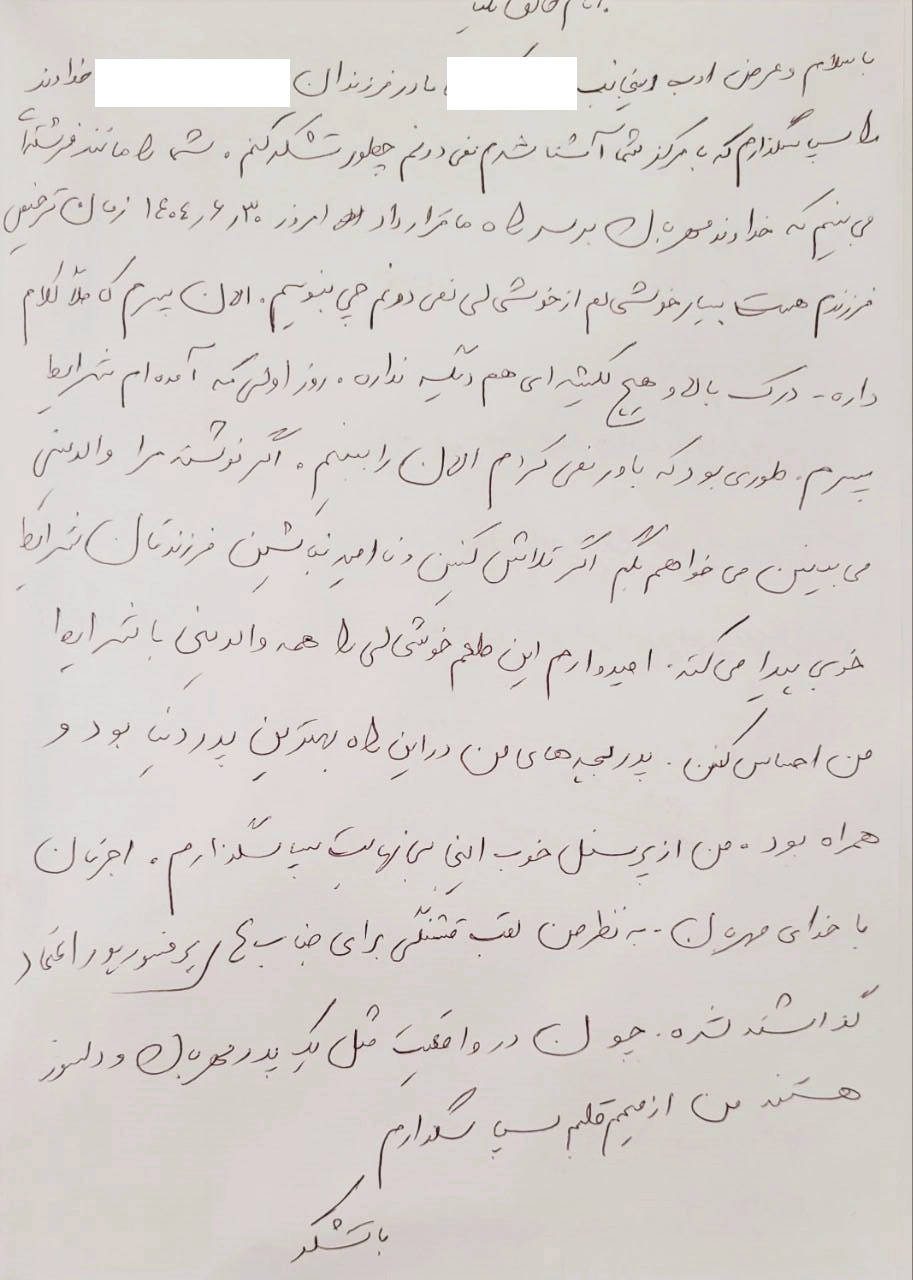 با سلام و عرض ادب اینجانب مادر فرزندان خداوند
را سپاسگذارم که با مرکز شما آشنا شدم نمی دونم چطور تشکر کنم. شما را مانند فرشته‌ای
می بینیم که خداوند مهربان بر سر راه ما قرار داد امروز ۱۴۰۴٫۶٫۳۰ زمان ترخیص
فرزندم هست بسیار خوشحالم از خوشحالی نمی دونم چی بنویسم. الان پسرم کاملاً کلام
داره - درک بالا و هیچ کلیشه ای هم دیگه نداره. روز اولی که آمده ام شرایط
پسرم طوری بود که باور نمی کردم الان را ببینم. اگر نوشته مرا والدینی
می بینن می خواهم بگم اگر تلاش کنین و نا امید نباشین فرزندتان شرایط
خوبی پیدا می کنه. امیدوارم این طعم خوشحالی را همه والدینی با شرایط
من احساس کنن. پدر بچه های من در این راه بهترین پدر دنیا بود و
همراه بود. من از پرسنل خوب اینجا بی نهایت سپاسگذارم. اجرتان
با خدای مهربان - به نظر من لقب قشنگی برای جناب پرفسور پور اعتماد
گذاشته شده. چون در واقعیت مثل یک پدر مهربان و دلسوز
هستند من از صمیم قلبم سپاسگذارم
با تشکر